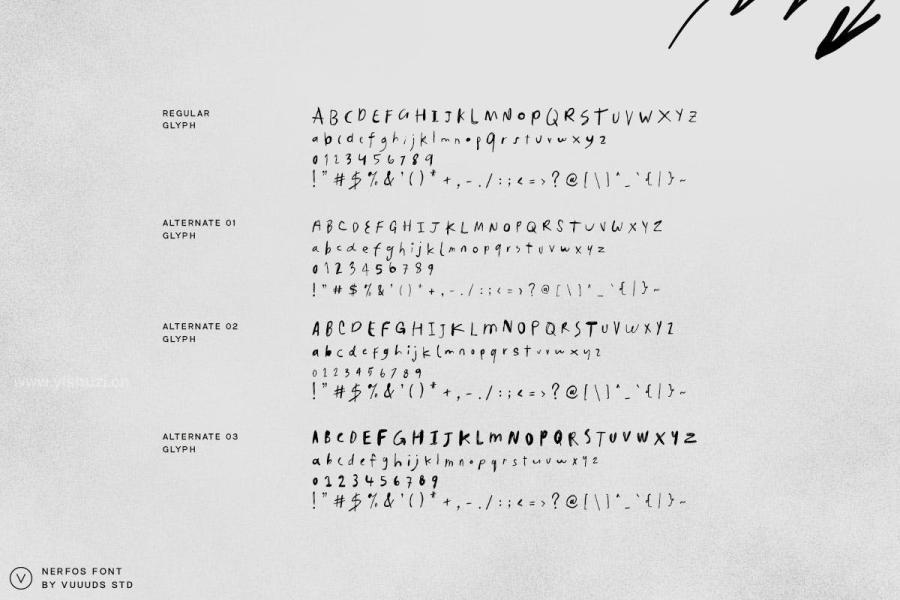 REGULAR
GLYPH
A B C D E F G H I J K L M N O P Q R S T U V W X Y Z
a b c d e f g h i j k l m n o p q r s t u v w x y z
0 1 2 3 4 5 6 7 8 9
! " # $ % & ' ( ) * + , - . / : ; < = > ? @ [ \ ] ^ _ ` { | } ~
ALTERNATE 01
GLYPH
A B C D E F G H I J K L M N O P Q R S T U V W X Y Z
a b c d e f g h i j k l m n o p q r s t u v w x y z
0 1 2 3 4 5 6 7 8 9
! " # $ % & ' ( ) * + , - . / : ; < = > ? @ [ \ ] ^ _ ` { | } ~
ALTERNATE 02
GLYPH
A B C D E F G H I J K L M N O P Q R S T U V W X Y Z
a b c d e f g h i j k l m n o p q r s t u v w x y z
0 1 2 3 4 5 6 7 8 9
! " # $ % & ' ( ) * + , - . / : ; < = > ? @ [ \ ] ^ _ ` { | } ~
www.yishuzi.cn
ALTERNATE 03
GLYPH
A B C D E F G H I J K L M N O P Q R S T U V W X Y Z
a b c d e f g h i j k l m n o p q r s t u v w x y z
0 1 2 3 4 5 6 7 8 9
! " # $ % & ' ( ) * + , - . / : ; < = > ? @ [ \ ] ^ _ ` { | } ~
V
NERFOS FONT
BY VUUUDS STD